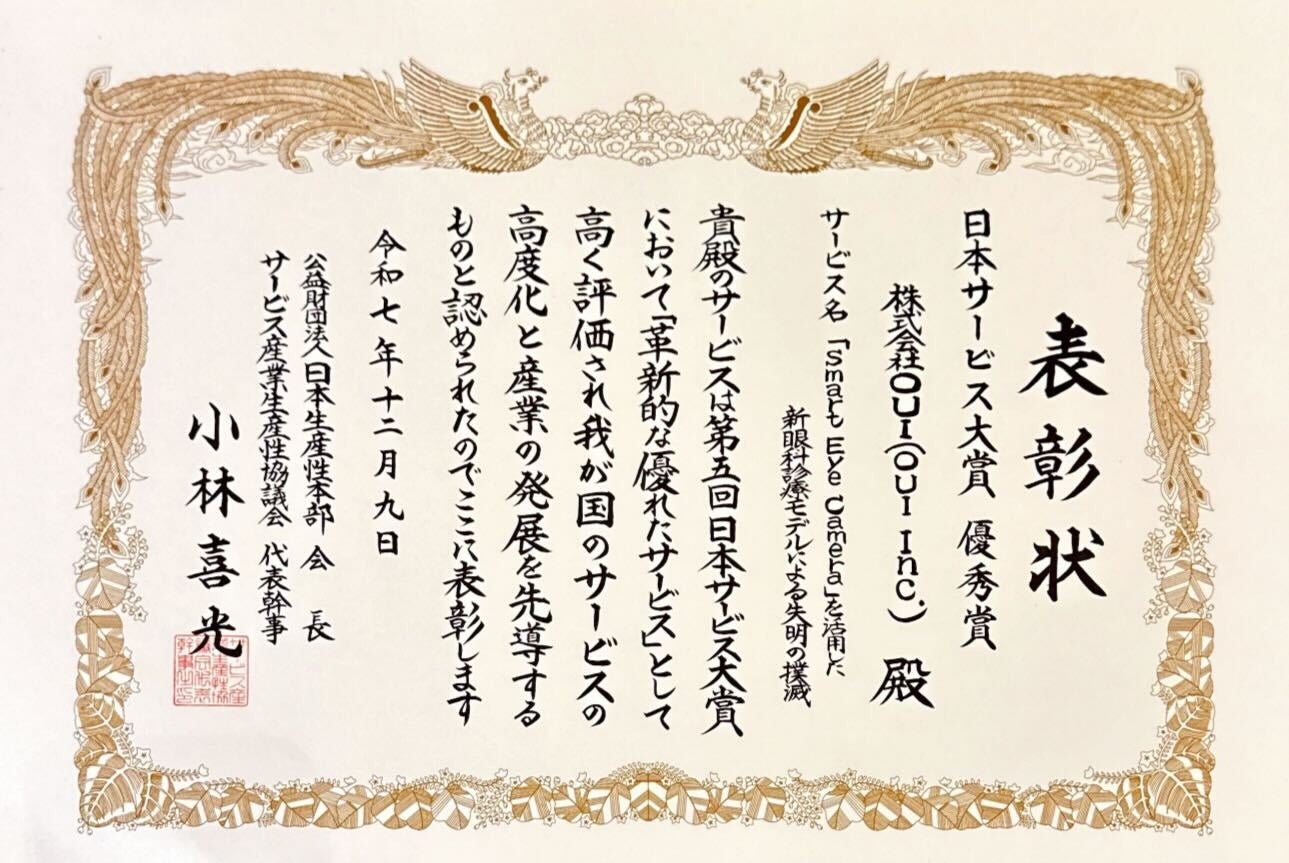 表彰状
日本サービス大賞 優秀賞
株式会社OUI(OUI Inc.) 殿
サービス名「Smart Eye Camera」を活用した
新眼科診療モデルによる失明の撲滅
貴殿のサービスは第五回日本サービス大賞
において「革新的な優れたサービス」として
高く評価され我が国のサービスの
高度化と産業の発展を先導する
ものと認められたのでここに表彰します
令和七年十二月九日
公益財団法人日本生産性本部 会長
サービス産業生産性協議会 代表幹事
小林喜光